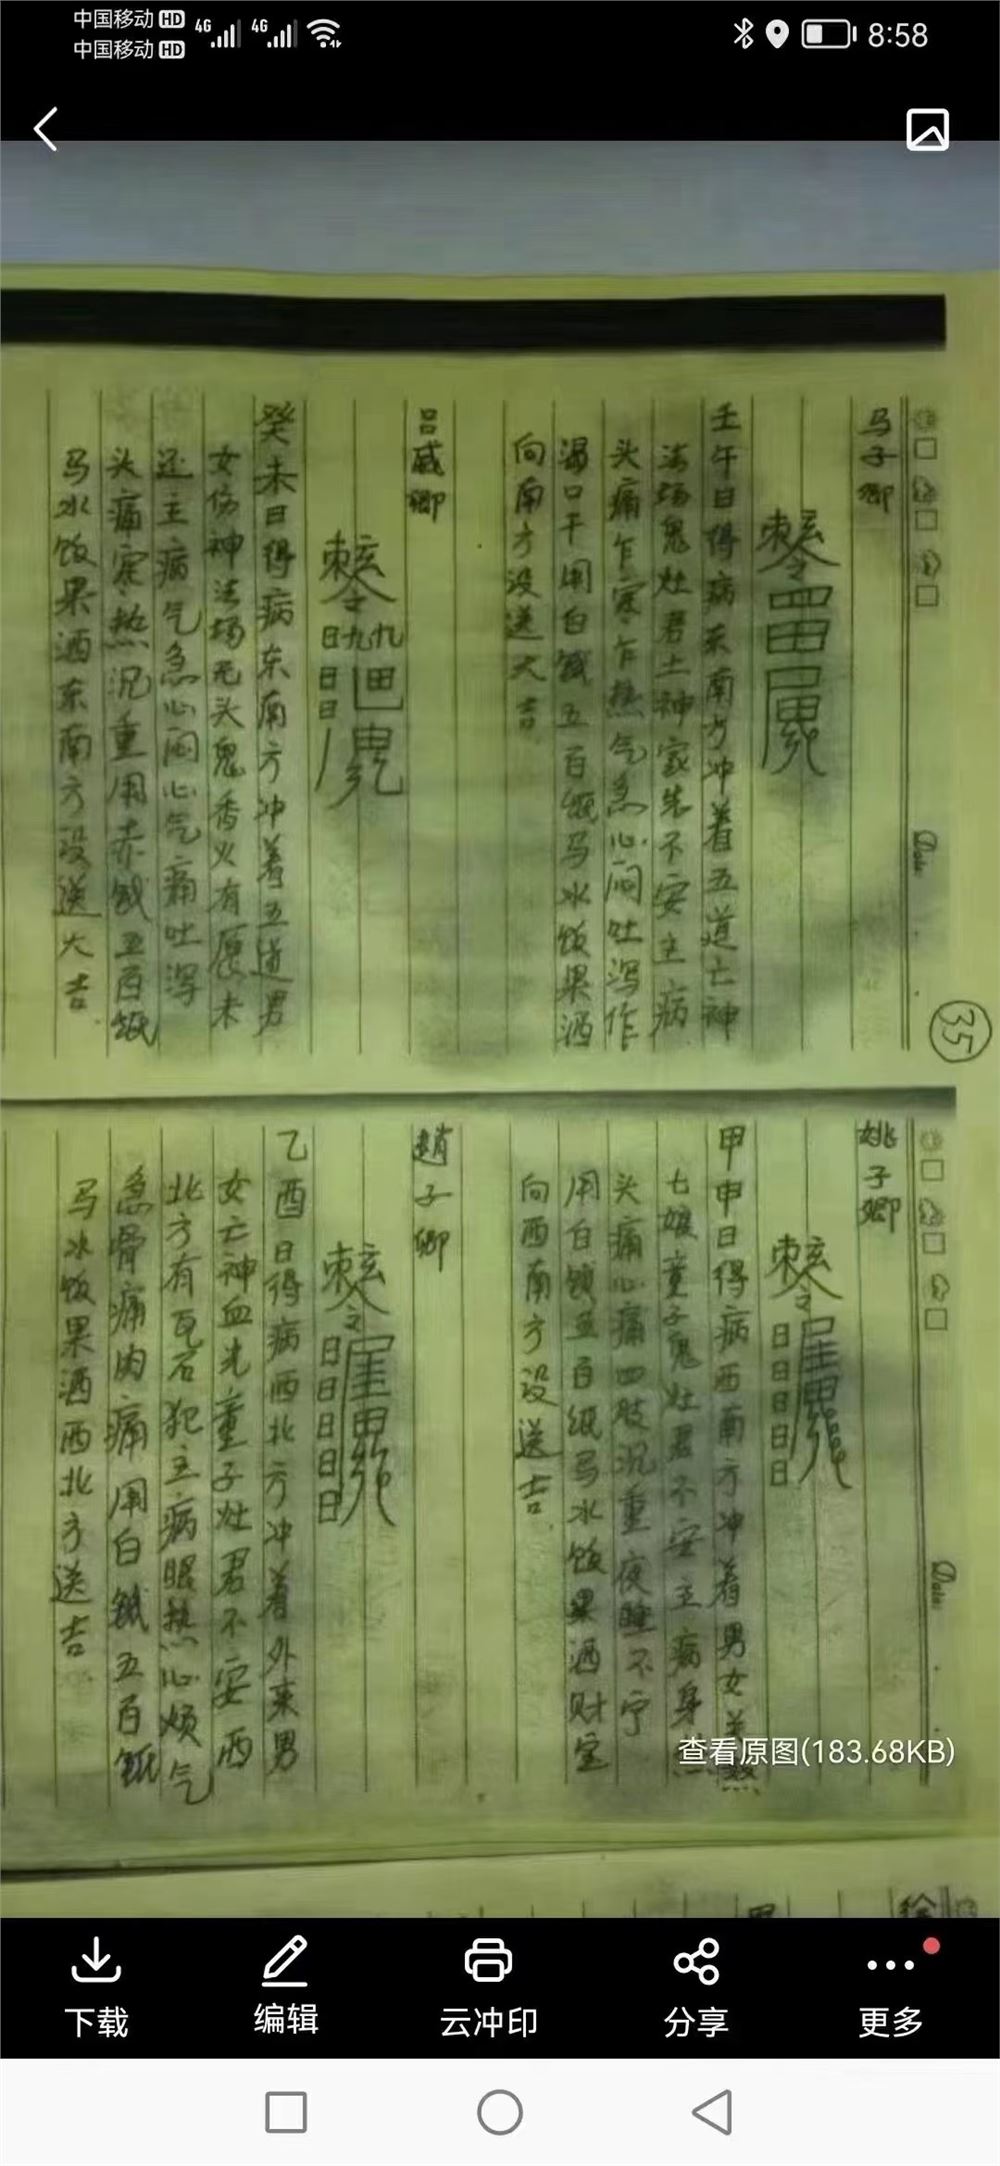 中国移动 HD 4G 4G 8:58
中国移动 HD
马子卿
壬午日得病东南方冲着五道亡神
法场鬼灶君土神家先不安主病
头痛乍寒乍热气急心闷吐泻作
渴口干用白钱五百纸马水饭果酒
向南方设送大吉
吕威卿
癸未日得病东南方冲着五道男
女伤神法场无头鬼香火有愿未
还主病气急心闷心气痛吐泻
头痛寒热沉重用赤钱五百纸
马水饭果酒东南方设送大吉.
Date
35
姚子卿
甲申日得病西南方冲着男女关煞
七娘童子鬼灶君不安主病身
头痛心痛四肢沉重夜睡不宁
用白钱五百纸马水饭果酒财宝
向西南方设送吉.
趙子卿
乙酉日得病西北方冲着外来男
女亡神血光童子灶君不安西
北方有瓦石犯主病眼热心烦气
急骨痛肉痛用白钱五百纸
马水饭果酒西北方送吉
Date
查看原图(183.68KB)
下载 编辑 云冲印 分享 更多